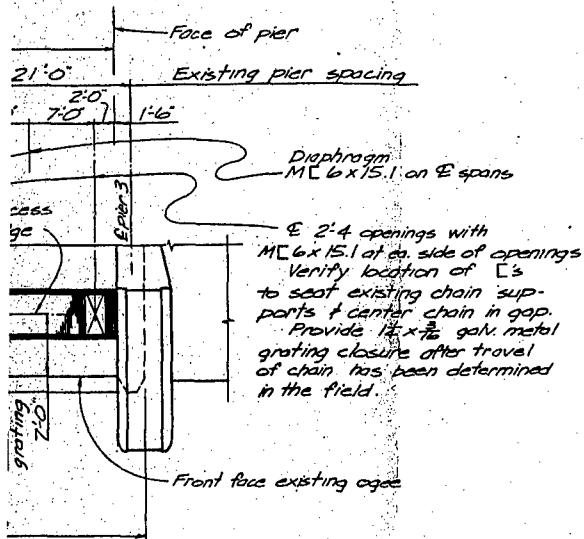 Face of pier
21'-0" Existing pier spacing
2'-0"
7'-0" 1'-6"
Diaphragm
M[ 6 x 15.1 on ℄ spans
℄ pier 3
℄ 2'-4 openings with
M[ 6 x 15.1 at ea. side of openings
Verify location of ['s
to seat existing chain sup-
ports & center chain in gap.
Provide 1¼ x 3/16 galv. metal
grating closure after travel
of chain has been determined
in the field.
grating
2'-0"
Front face existing ogee